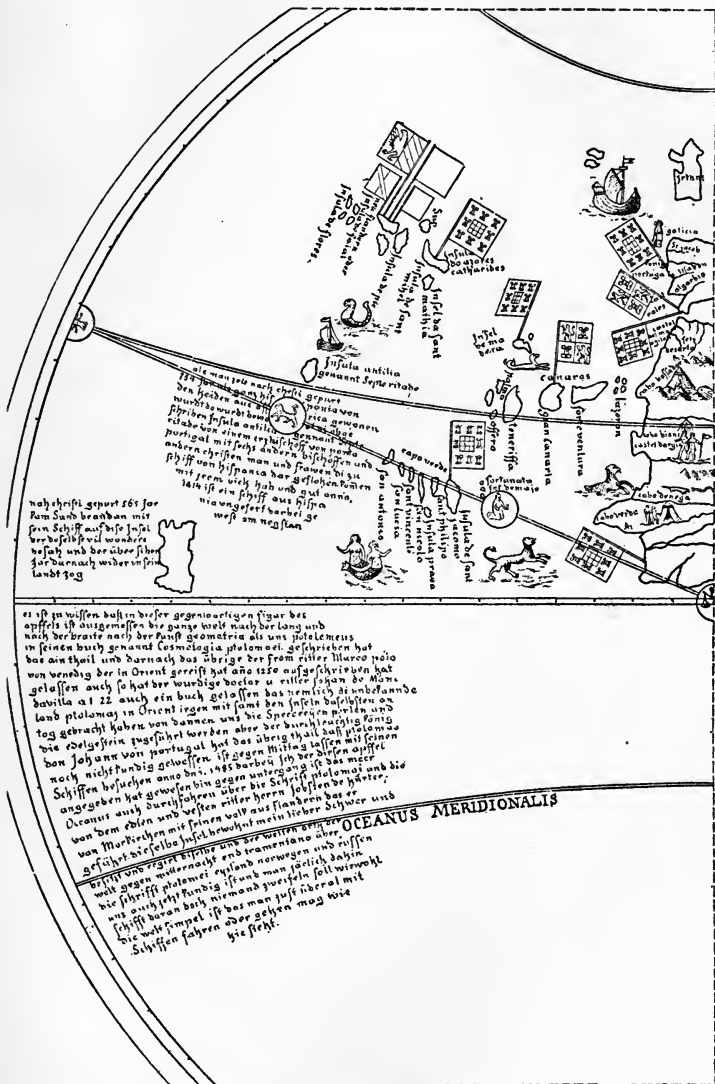 Irlant
galicia
St Jacob
portugal
algarbia
Insula de flores.
Insula de pico
Insula de sant
mihel
Insel da sant
mathia
Insula
do azores
catharides
Insel
de ma
dera
canaras
teneriffa
gran canaria
forteventura
lazeron
offero
Insula antilia
genannt Septe ritade
als man zelt nach christi gepurt
734 Jor als ganz hispania von
den heiden aus africa gewonen
wurdt do wurdt bewont di obge
schriben Insula antilia genannt Septe
ritade von einem erzbischoff von porto
portigal mit sechs andern bischoffen und
andern christen man und frawen di zu
schiff von hispania dar geflohen komen
mit irem vieh hab und gut anno
1414 ist ein schiff aus hispa
nia ungefert darbei ge
west am negsten
capo verde
san antonio
sant vincenci
san lucia
san nicolo
Insula prava
sant philipo
Insula de sant
jacomo
fortunata
castel dargin
cabo verde
noch christi gepurt 565 Jor
kam Sand brandan mit
sein Schiff auf dise Insel
der doselbs vil wonders
besah und der über siben
Jar darnach wider in sein
landt zog
es ist zu wissen daß in dieser gegenwartigen figur des
apffels ist ausgemessen die ganze welt nach der lang und
nach der braite nach der kunst geometria als uns ptolemeus
in seinen buch genannt Cosmologia ptolomaei geschrieben hat
das ain thail und darnach das übrige der from ritter Marco polo
von venedig der in Orient gereist hat año 1250 aufgeschrieben hat
gelassen auch so hat der wurdige doctor u. ritter Johan de Mon.
davilla a 1 22 auch ein buch gelassen das nemlich di unbekannde
land ptolomaj in Orient irgen mit samt den Inseln daselbsten an
tog gebracht haben von dannen uns die Specereyen perlen und
die edelgestein zugeführt werden aber der durchleuchtig könig
don Johann von portugal hat das überig thail daß ptolomao
noch nicht kundig gewessen ist gegen Mittag lassen mit seinen
Schiffen besuchen anno dni. 1485 darbey Ich der diesen apffel
angegeben hat gewesen bin gegen untergang ist das meer
Oceanus auch durchfahren über die Schrift ptolomai und die
von dem edlen und vesten ritter herrn Jobsten de hürter;
von Morkirchen mit seinen volk aus flandern das er
geführt dieselbe Insel bewohnt mein lieber Schwer und
besizt und regirt dieselbe und der weiten oein der
welt gegen mitternacht end tramontana über
die schrifft ptolomei eysland norwegen und russen
uns auch jetzt kundig ist und man järlich dahin
schifft daran doch niemand zweifeln soll wiewohl
die welt simpel ist das man just überal mit
Schiffen fahren oder gehen mag wie
hie steht.
OCEANUS MERIDIONALIS